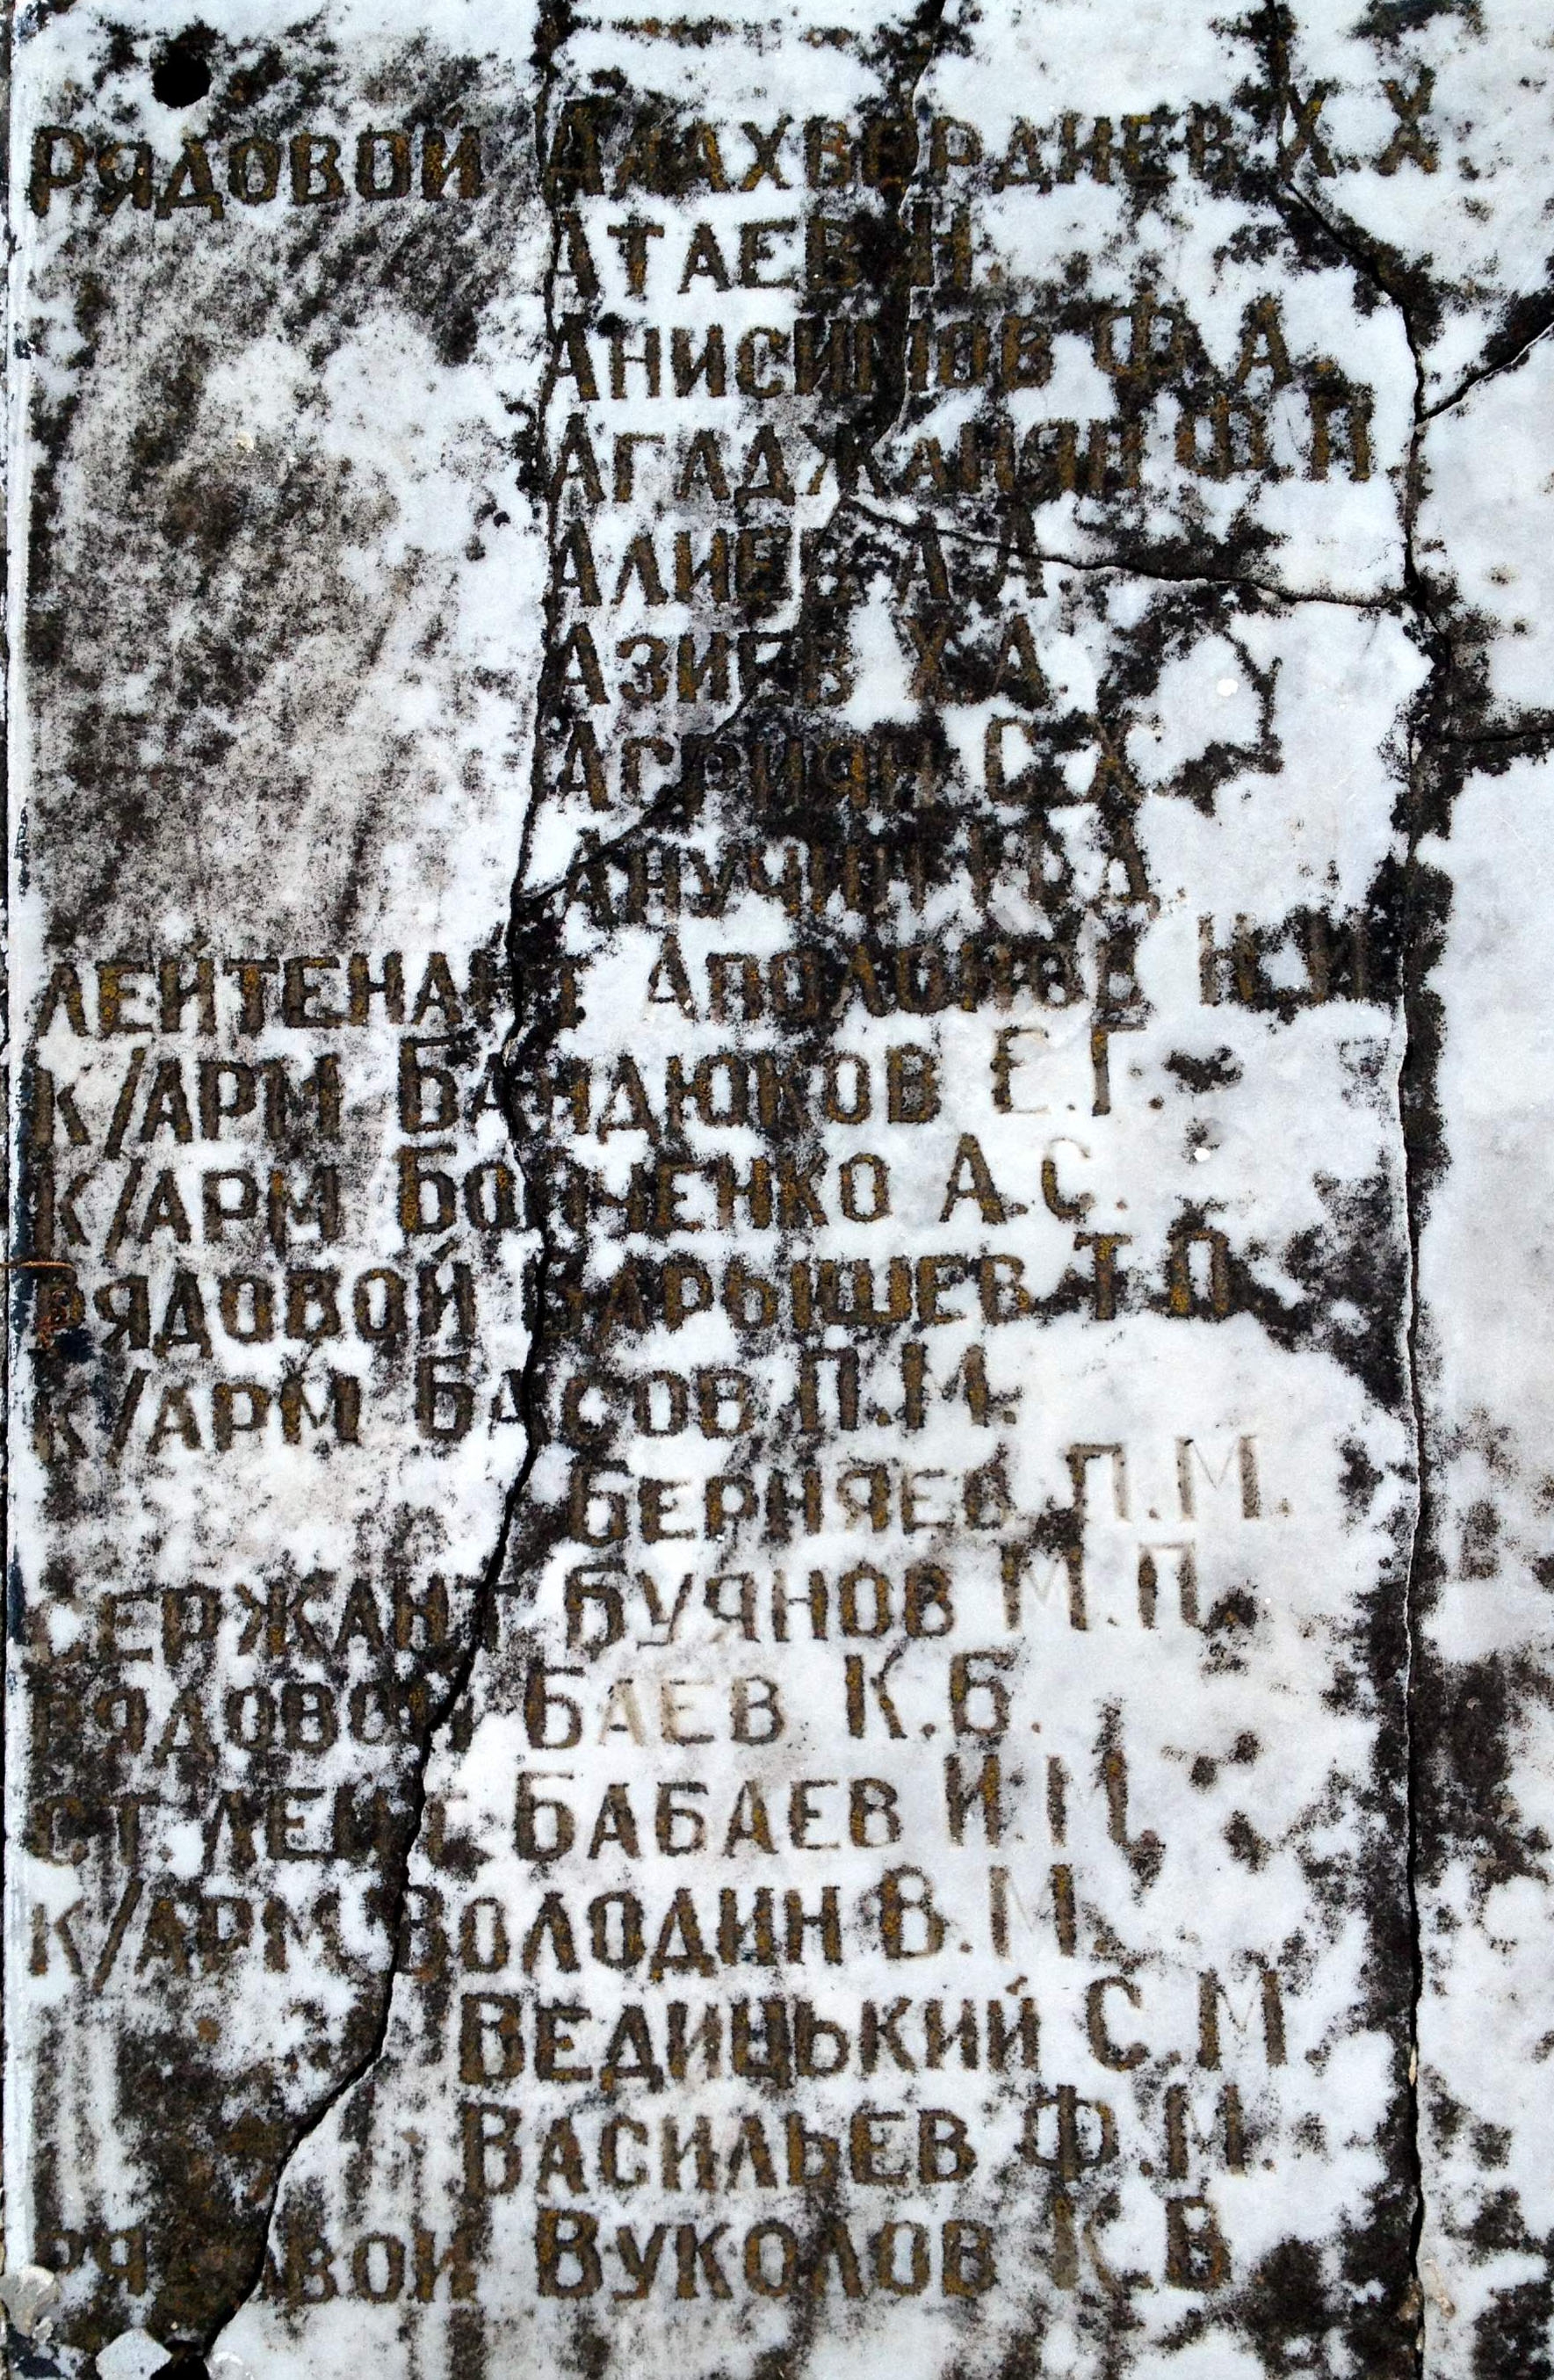 РЯДОВОЙ АЛАХВЕРДИЕВ Х.Х.
АТАЕВ Н.
АНИСИМОВ Ф.А.
АГАДЖАНЯН Ф.П.
АЛИЕВ А.А.
АЗИЕВ Х.А.
АГРИЯН С.Х.
АНУЧИН Д
ЛЕЙТЕНАНТ АПОЛОНОВ Н.И
К/АРМ БАНДЮКОВ Е.Г.
К/АРМ А.С.
РЯДОВОЙ БАРЫШЕВ Т.П.
К/АРМ БАСОВ П.И.
БЕРНЯЕВ П.М.
СЕРЖАНТ БУЯНОВ М.П.
РЯДОВОЙ БАЕВ К.Б.
СТ. ЛЕЙТ. БАБАЕВ И.М.
К/АРМ ВОЛОДИН В.М.
ВЕДИЦЬКИЙ С.М
ВАСИЛЬЕВ Ф.И.
РЯДОВОЙ ВУКОЛОВ К.В.